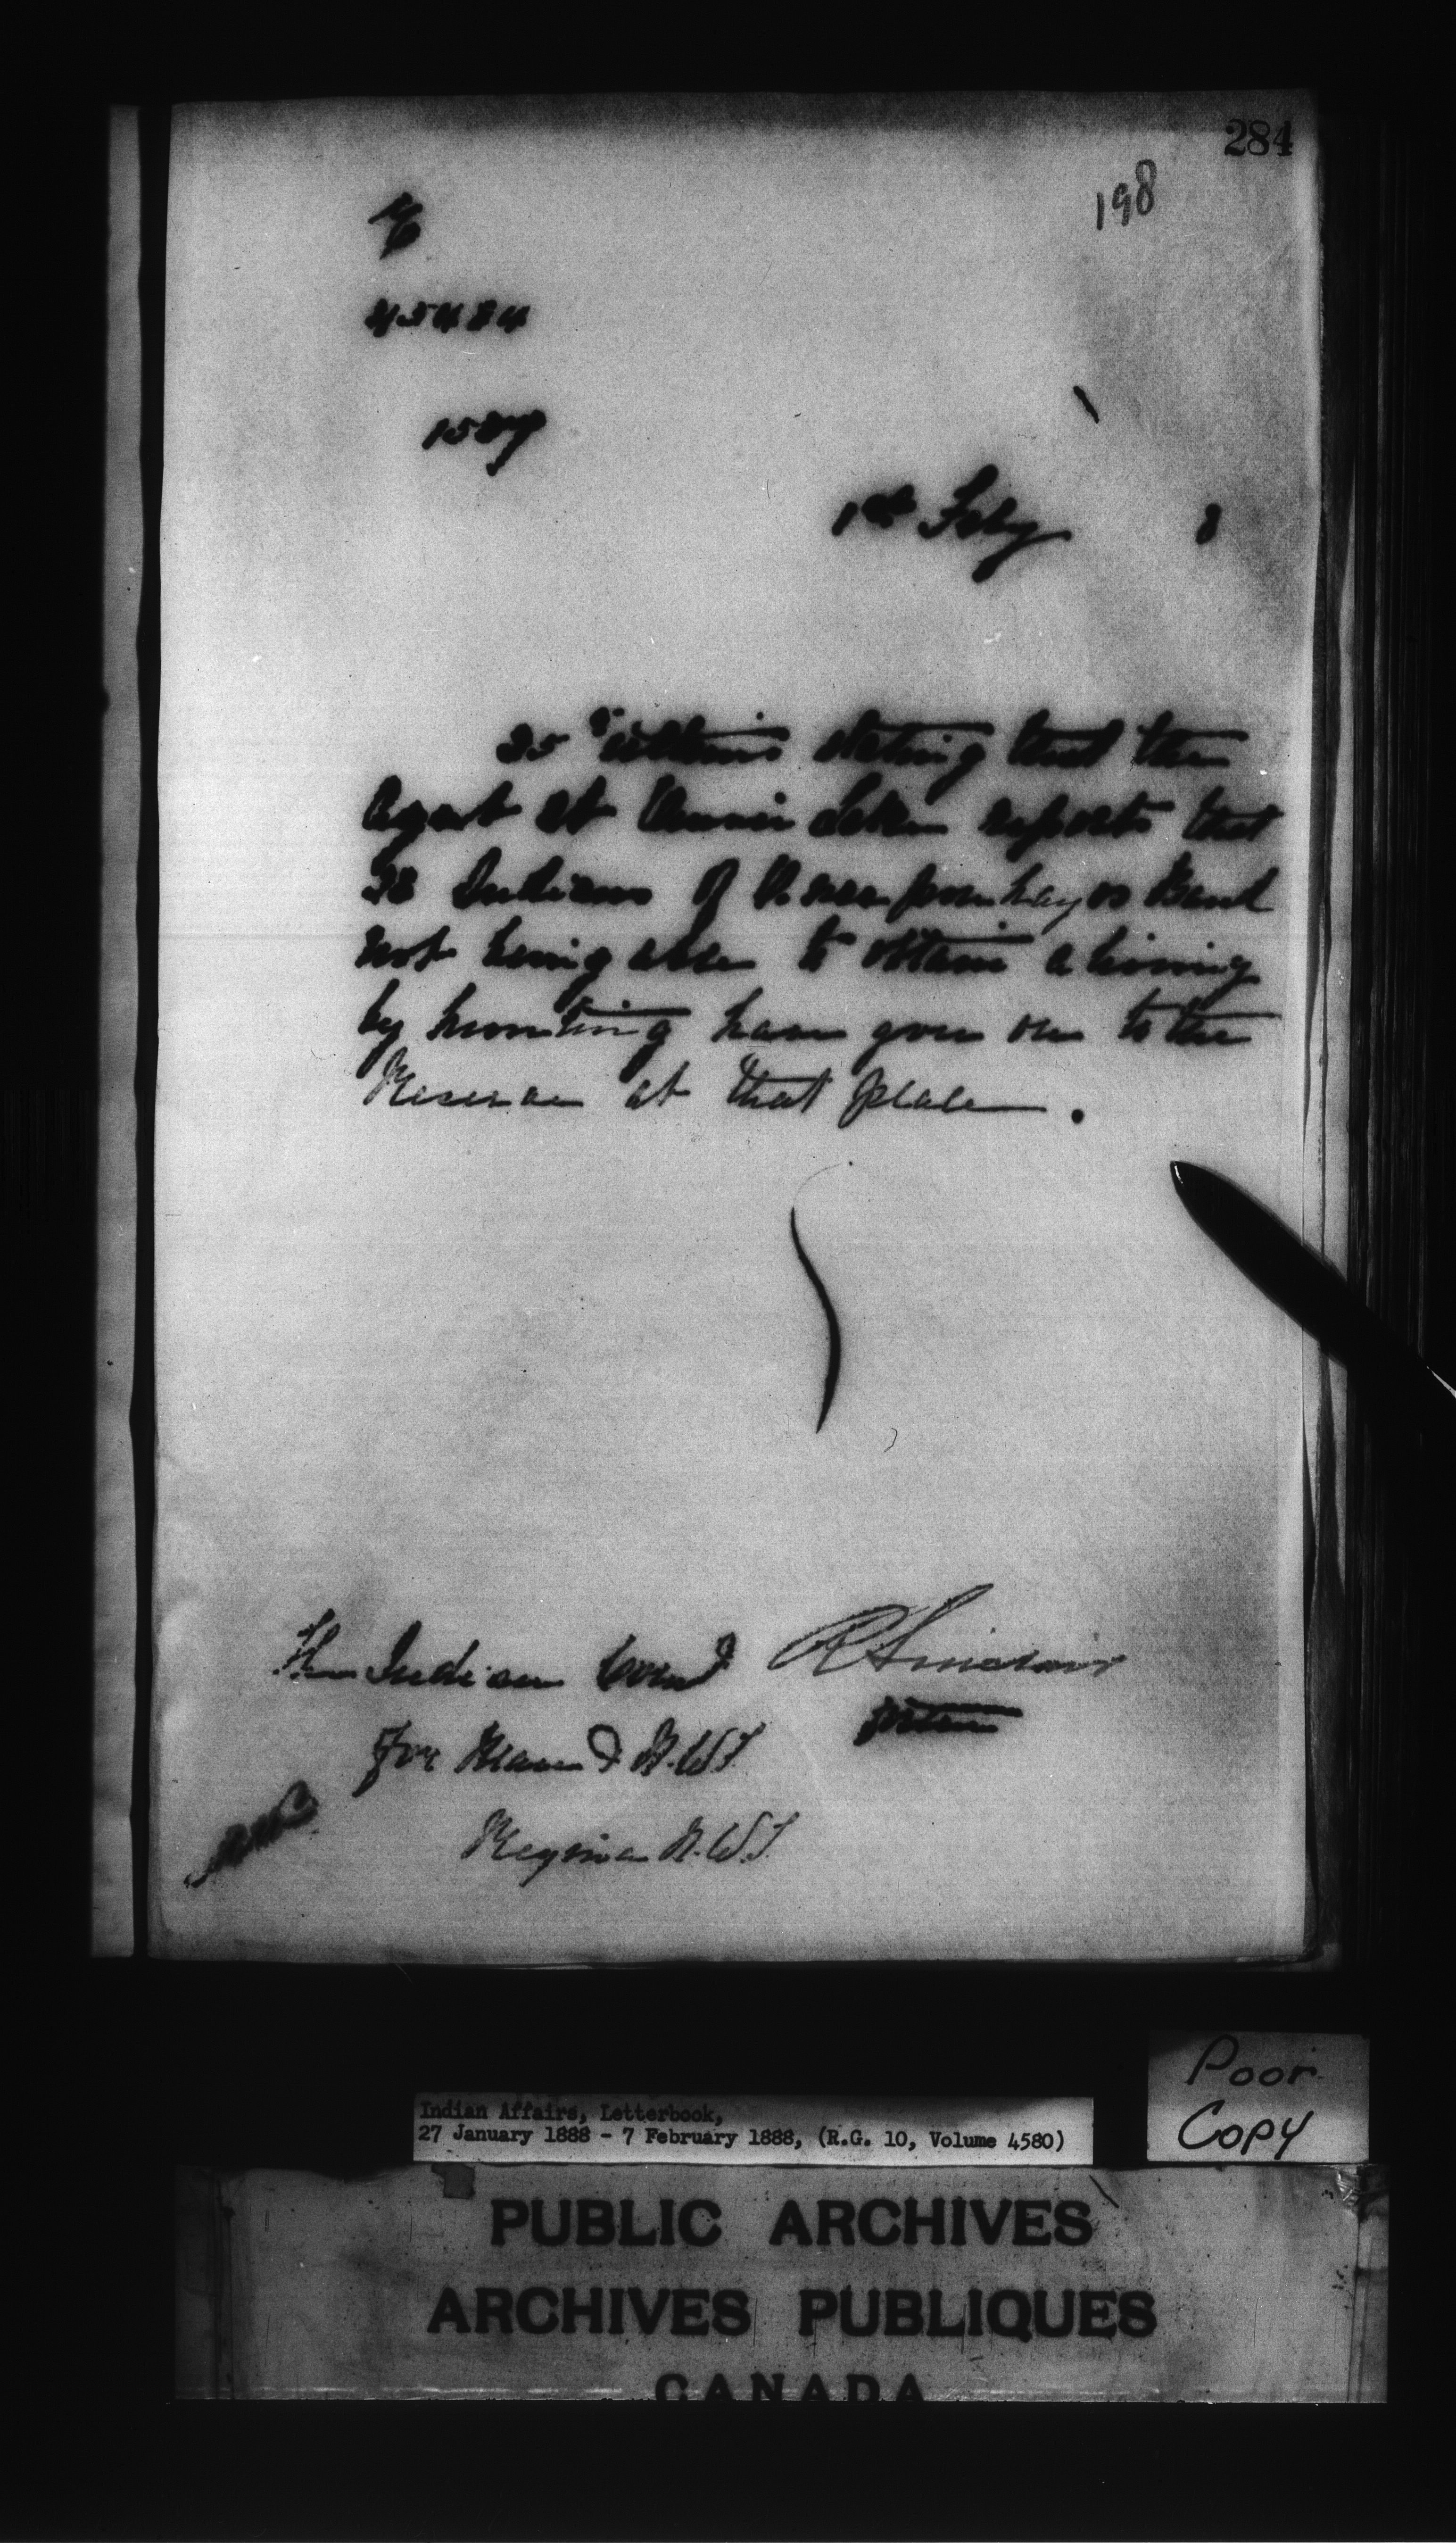 284
198
45484
1587
1st Feby 8
25th ultimo stating that the
Agent at Onion Lake reports that
38 Indians of Band
not being able to obtain a living
by hunting have gone on to the
Reserve at that place.
The Indian Comr
for Man & N.W.T
Regina N.W.T.
R Sinclair
Poor
Copy
Indian Affairs, Letterbook,
27 January 1888 - 7 February 1888, (R.G. 10, Volume 4580)
PUBLIC ARCHIVES
ARCHIVES PUBLIQUES
CANADA